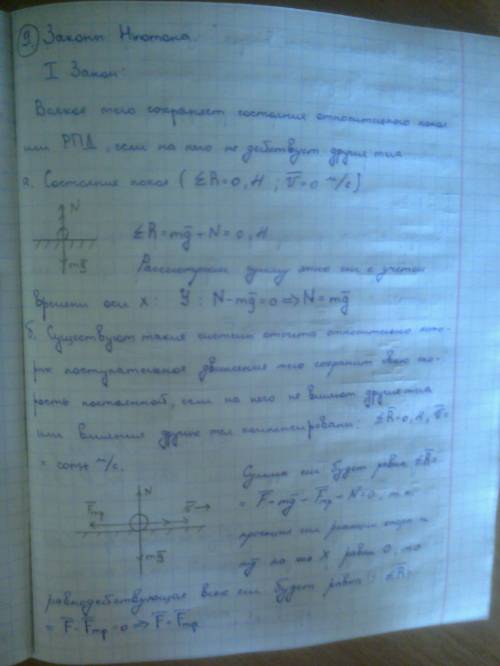 9. Законы Ньютона.
I Закон:
Всякое тело сохраняет состояние относительного покоя
или РПД, если на него не действует другие тела
а. Состояние покоя ( ΣR̄=0, Н ; V̄=0 м/с)
N
mḡ
ΣR̄=mḡ+N=0, Н
Рассмотрим сумму этих сил с учетом
времени оси х: У: N-mḡ=0 ⇒ N=mḡ
б. Существуют такие системы отсчета относительно кото-
рых поступательное движение тело сохранит свою ско-
рость постоянной, если на него не влияют другие тела
или влияния других тел компенсированы: ΣR̄=0, Н, V̄=
= const м/с.
Сумма сил будет равна ΣR̄=
= F̄+mḡ+F̄тр+N=0, т.к
проекция сил реакции опоры и
mḡ на ось Х равна 0, то
N
F̄тр
V̄
mḡ
равнодействующая всех сил будет равна: ΣR̄=
= F̄-F̄тр=0 ⇒ F̄=F̄тр